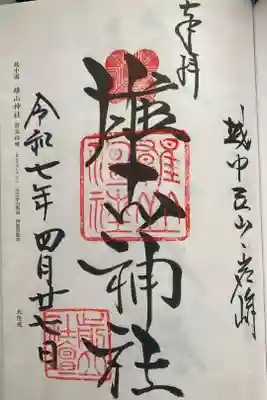 奉拝
越中立山岩峅
雄山神社
令和七年四月廿七日
越中國 雄山神社 前立社壇